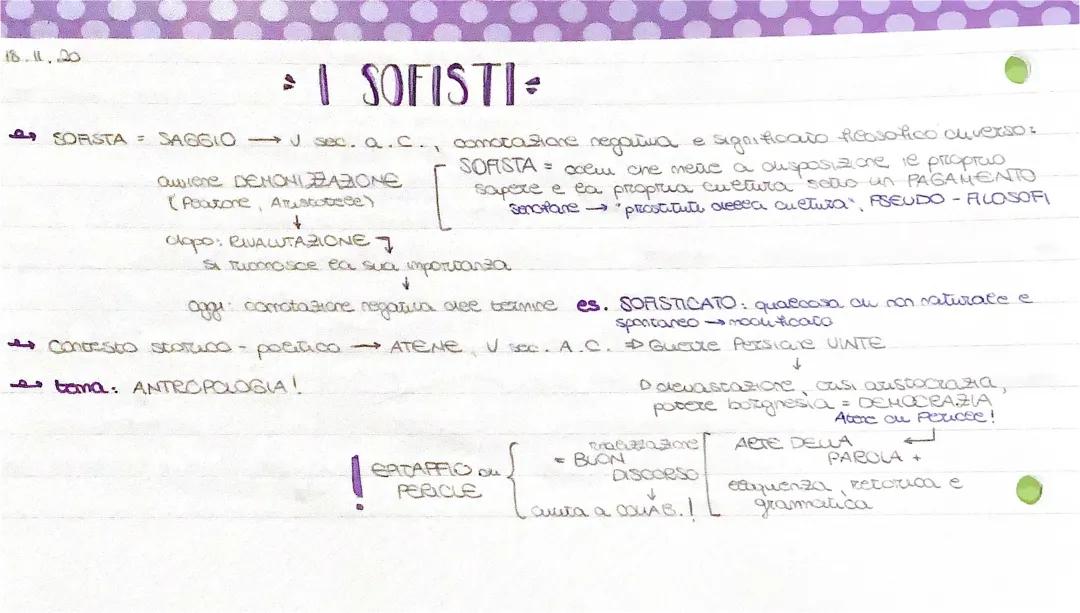 18.11.20
I SOFISTI
SOFISTA = SAGGIO → V sec. a.C., connotazione negativa e significato filosofico diverso:
avviene DEMONIZZAZIONE
(Platone, Aristotele)
SOFISTA = colui che mette a disposizione le proprio
sapere e la propria cultura sotto un PAGAMENTO
Senofane → "prostituti della cultura", PSEUDO-FILOSOFI
↓
dopo: RIVALUTAZIONE
si riconosce la sua importanza
↓
oggi: connotazione negativa del termine es. SOFISTICATO: qualcosa di non naturale e
spontaneo → modificato
Contesto storico-politico → ATENE, V sec. A.C. ⇒ Guerre Persiane VINTE
↓
tema: ANTROPOLOGIA!
devastazione, crisi aristocrazia,
potere borghesia = DEMOCRAZIA
Atene di Pericle!
! EPITAFFIO di
PERICLE
realizzazione
= BUON
DISCORSO
↓
aiuta a COLLAB.!
ARTE DELLA
PAROLA +
eloquenza, retorica e
grammatica